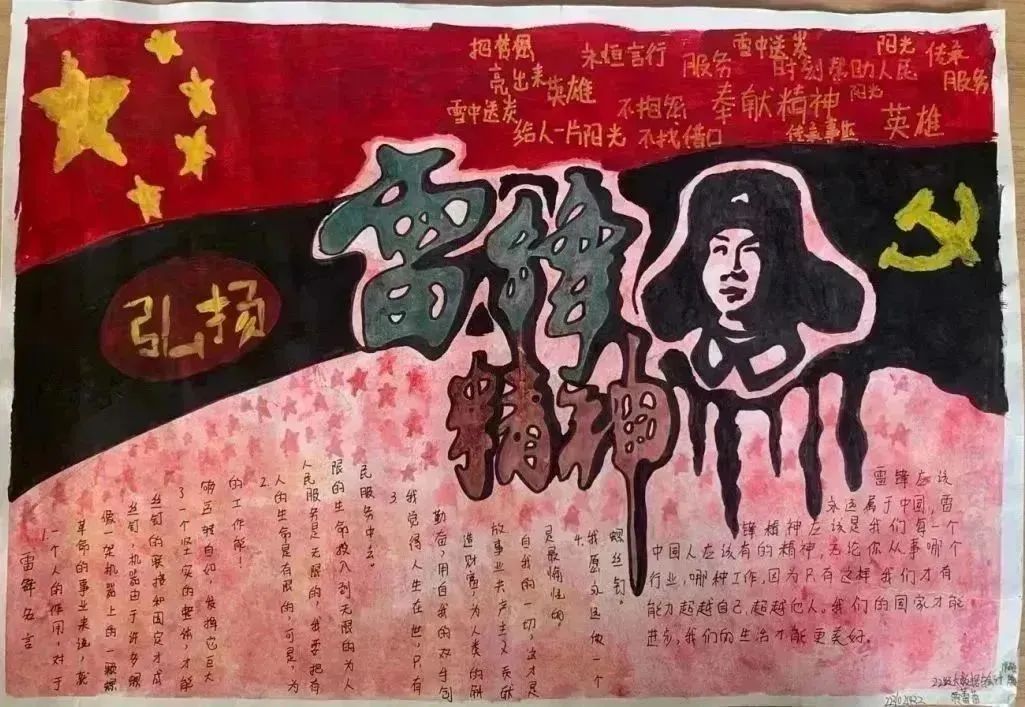 把梦想
亮出来
英雄
永恒言行
服务
雪中送炭
时刻帮助人民
阳光
传承
服务
雪中送炭
给人一片阳光
不抱怨
不找借口
奉献精神
阳光
英雄
弘扬
雷锋
精神
雷锋名言
1.一个人的作用,对于
革命的事业来说,就
像一架机器上的一颗螺
丝钉,机器由于许多螺
丝钉的联接和固定才成
3一个坚实的整体,才能
自如,发挥它巨大
的工作
2.人的生命是有限的,可是,为
人民服务是无限的,我要把有
限的生命投入到无限的为人
民服务中去。
3 我觉得人生在世,只有
勤奋,用自我的双手创
造财富,为人类的解
放事业共产主义贡献
自我的一切,这才是
4.我愿永远做一个
螺丝钉。
雷锋应该
永远属于中国,雷
锋精神应该是我们每一个
中国人应该有的精神,无论你从事哪个
行业,哪种工作,因为只有这样我们才有
能力超越自己,超越他人。我们的国家才能
进步,我们的生活才能更美好。